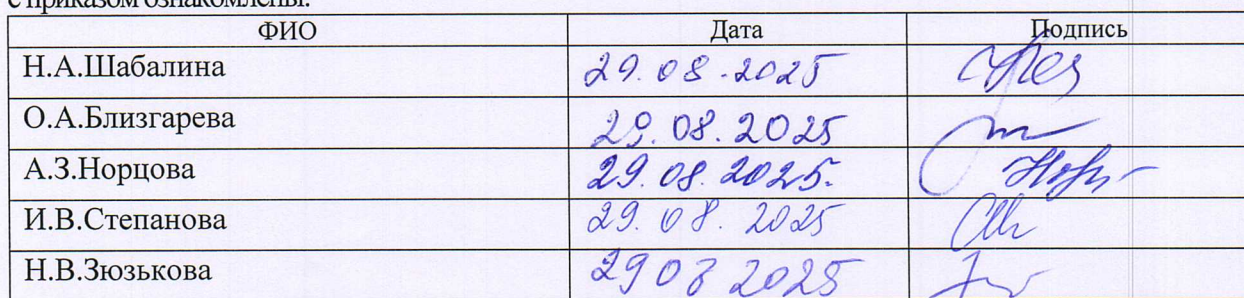 с приказом ознакомлены:
ФИО Дата Подпись
Н.А.Шабалина 29.08.2025
О.А.Близгарева 29.08.2025
А.З.Норцова 29.08.2025.
И.В.Степанова 29.08.2025
Н.В.Зюзькова 29 08 2025